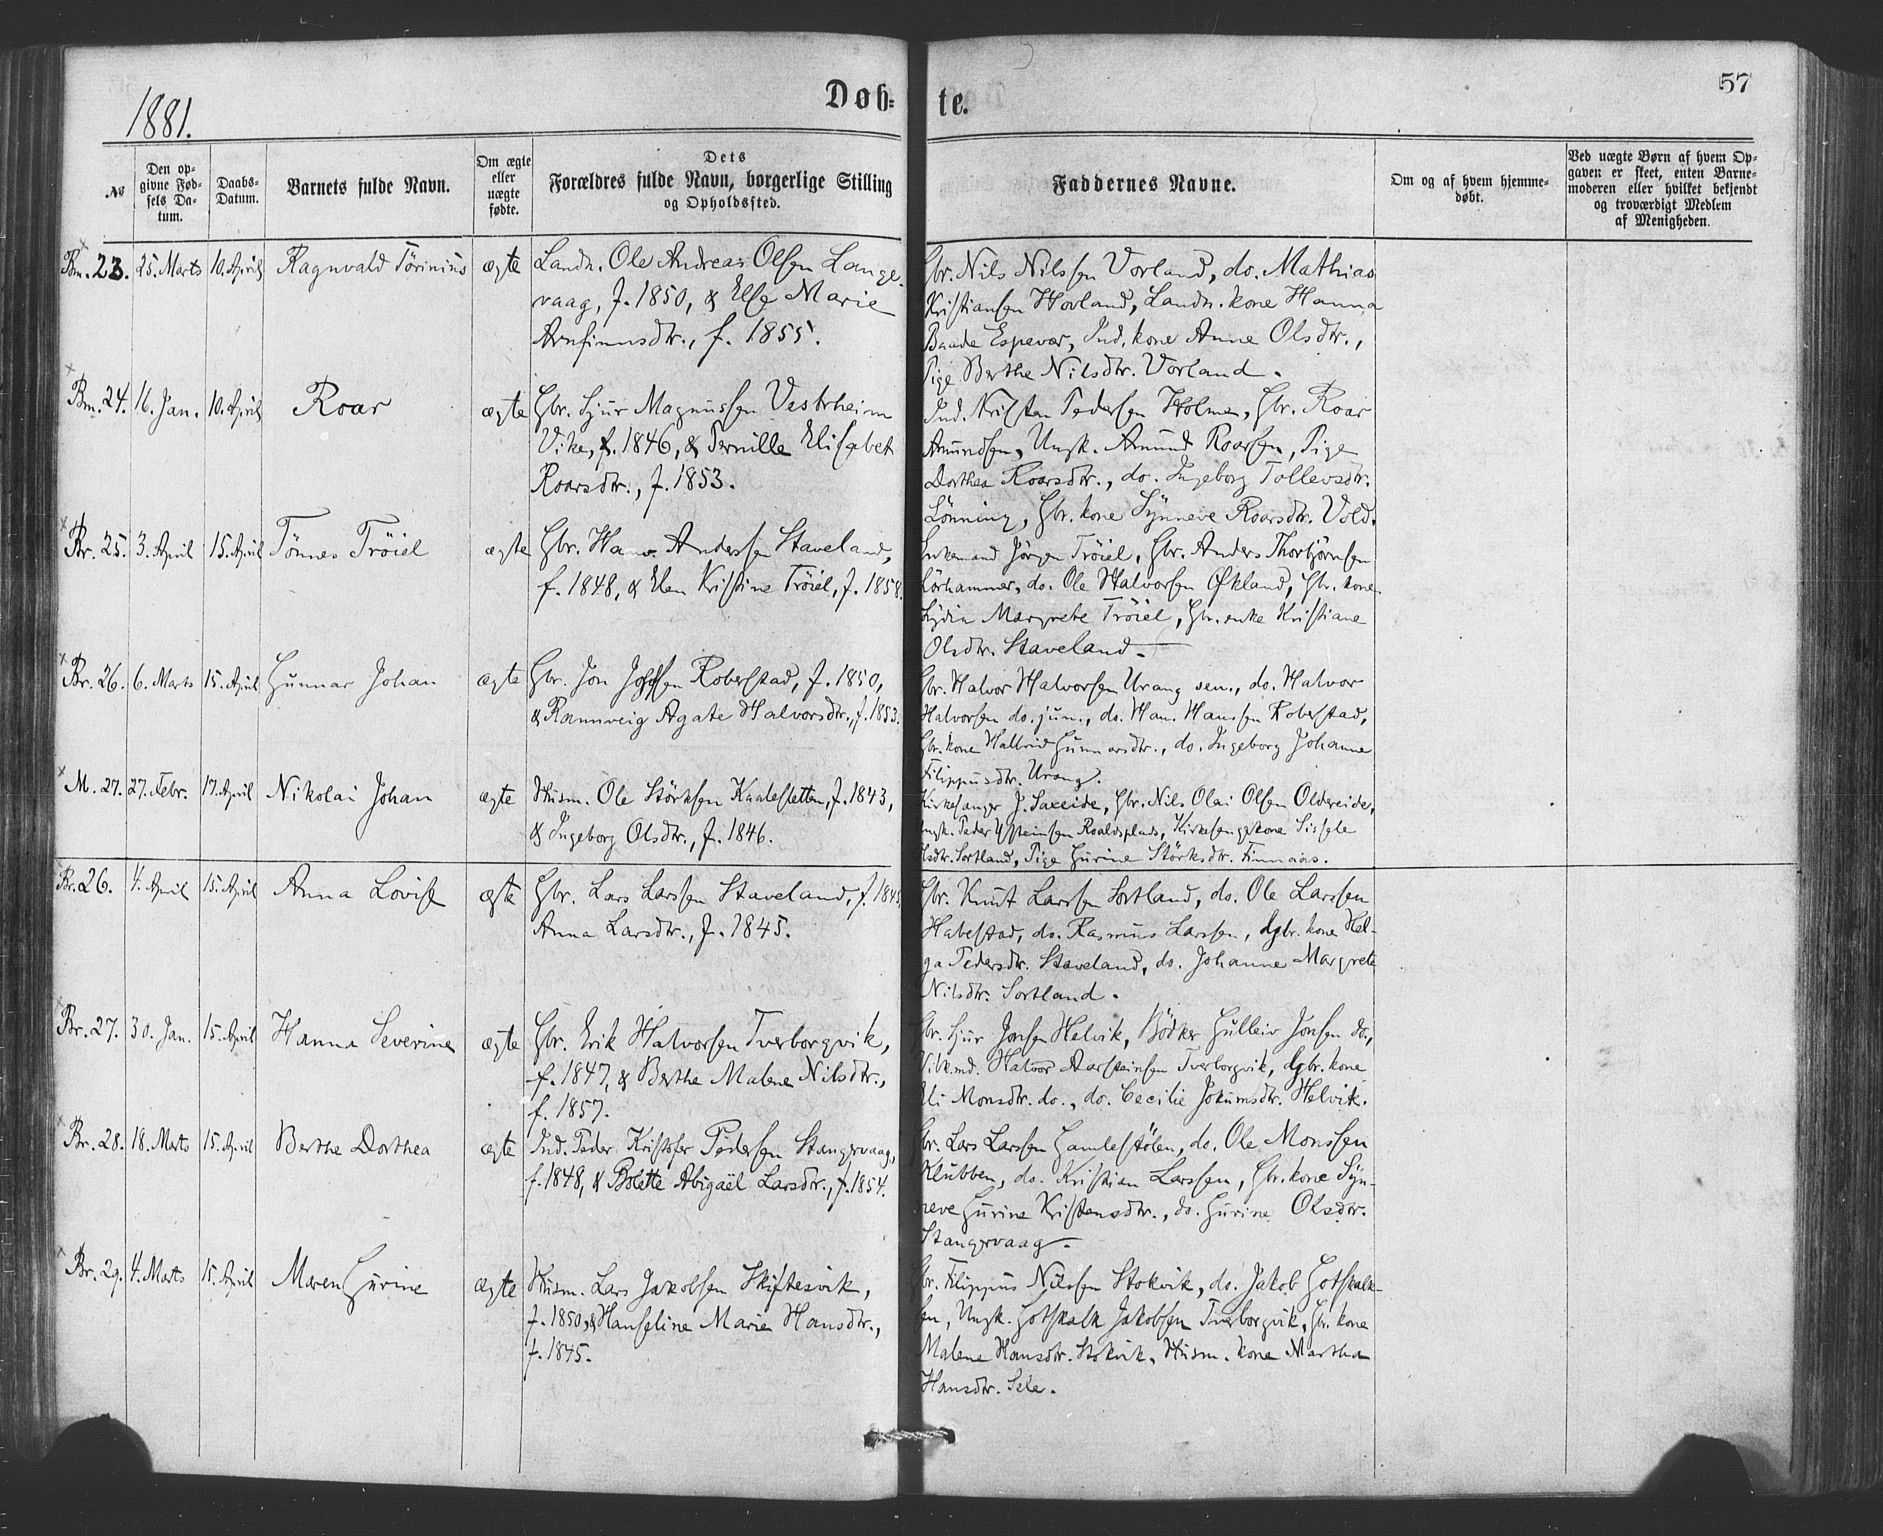 1881.
Døb-
te.
57
№
Den op-
givne Fød-
sels Da-
tum.
Daabs-
Datum.
Barnets fulde Navn.
Om ægte
eller
uægte
fødte.
Dets
Forældres fulde Navn, borgerlige Stilling
og Opholdssted.
Faddernes Navne.
Om og af hvem hjemme-
døbt.
Ved uægte Børn af hvem Op-
gaven er skeet, enten Barne-
moderen eller hvilket bekjendt
og troværdigt Medlem
af Menigheden.
Bm. 23. 25. Marts 10. April Ragnvald Törinius ægte
Landh. Ole Andreas Olsen Lange-
vaag, f. 1850, & Else Marie
Arnfinnsdtr., f. 1855.
Gbr. Nils Nilssen Vorland, do. Mathias
Kristiansen Hovland, Landh. kone Hanna
Baade Espevær, Ind. kone Anne Olsdtr.,
Pige Berthe Nilsdtr. Vorland.
Bm. 24. 16. Jan. 10. April Roar ægte
Gbr. Sjur Magnussen Vestrheim
Vike, f. 1846, & Pernille Elisabet
Roarsdtr., f. 1853.
Ind. Kristen Pedersen Holmen, Gbr. Roar
Amundsen, Ungk. Amund Roarsen, Pige
Dorthea Roarsdtr., do. Ingeborg Tollevsdtr.
Lönning, Gbr. kone Synneve Roarsdtr. Vold.
Br. 25. 3. April 15. April Tönnes Tröiel ægte
Gbr. Hans Anderssen Staveland,
f. 1848, & Elen Kristine Tröiel, f. 1858.
Enkemand Jörgen Tröiel, Gbr. Anders Thorbjörnsen
Lörhammer, do. Ole Halvorsen Økland, Gbr. kone
Lydia Margrete Tröiel, Gbr. enke Kristiane
Olsdtr. Staveland.
Br. 26. 6. Marts 15. April Gunnar Johan ægte
Gbr. Jon Jonssen Robersstad, f. 1850,
& Rannveig Agate Halvorsdtr., f. 1853.
Gbr. Halvor Halvorsen Urang sen., do. Halvor
Halvorsen do. jun., do. Hans Hanssen Roberstad,
Gbr. kone Hallvid Gunnarsdtr., do. Ingeborg Johanne
Filippusdtr. Urang.
M. 27. 27. Febr. 17. April Nikolai Johan ægte
Husm. Ole Störksen Kaalestetten, f. 1843,
& Ingeborg Olsdtr., f. 1846.
Kirkesanger J. Saxeide, Gbr. Nils Olai Olsen Oldereide,
Ungk. Peder Ysteinsen Roaldsplads, Kirkesangerkone Sissele
Olsdtr. Sortland, Pige Gurine Störksdtr. Finnaas.
Br. 26. 4. April 15. April Anna Lovise ægte
Gbr. Lars Larssen Staveland, f.
Anna Larsdtr., f. 1845.
Gbr. Knut Larssen Sortland, do. Ole Larssen
Habestad, do. Rasmus Larssen, Gbr. kone Hel-
ga Pedersdtr. Staveland, do. Johanne Margrete
Nilsdtr. Sortland.
Br. 27. 30. Jan. 15. April Hanna Severine ægte
Gbr. Erik Halvorsen Tverborgvik,
f. 1847, & Berthe Malene Nilsdtr.,
f. 1857.
Gbr. Sjur Jonsen Helvik, Bödker Gulleiv Jonsen do.,
Vilk.md. Halvor Aarsteinsen Tverborgvik, Gbr. kone
Eli Monsdtr. do., do. Cecilie Jokumsdtr. Helvik.
Br. 28. 18. Marts 15. April Berthe Dorthea ægte
Ind. Peder Kristofer Pedersen Stangervaag,
f. 1848, & Bolette Abigaël Larsdtr., f. 1854.
Gbr. Lars Larssen Gamlestölen, do. Ole Monssen
Klubben, do. Kristian Larssen, Gbr. kone Syn-
neve Gurine Kristensdtr., do. Gurine Olsdtr.
Stangervaag.
Br. 29. 4. Marts 15. April Maren Gurine ægte
Husm. Lars Jakobsen Skiftesvik,
f. 1850, & Hanseline Marie Hansdtr.,
f. 1845.
Gbr. Filippus Nilssen Stokvik, do. Jakob Gotskalk-
sen, Ungk. Gotskalk Jakobsen Tverborgvik, Gbr. kone
Malene Hansdtr. Stokvik, Husm. kone Martha
Hansdtr. Sele.